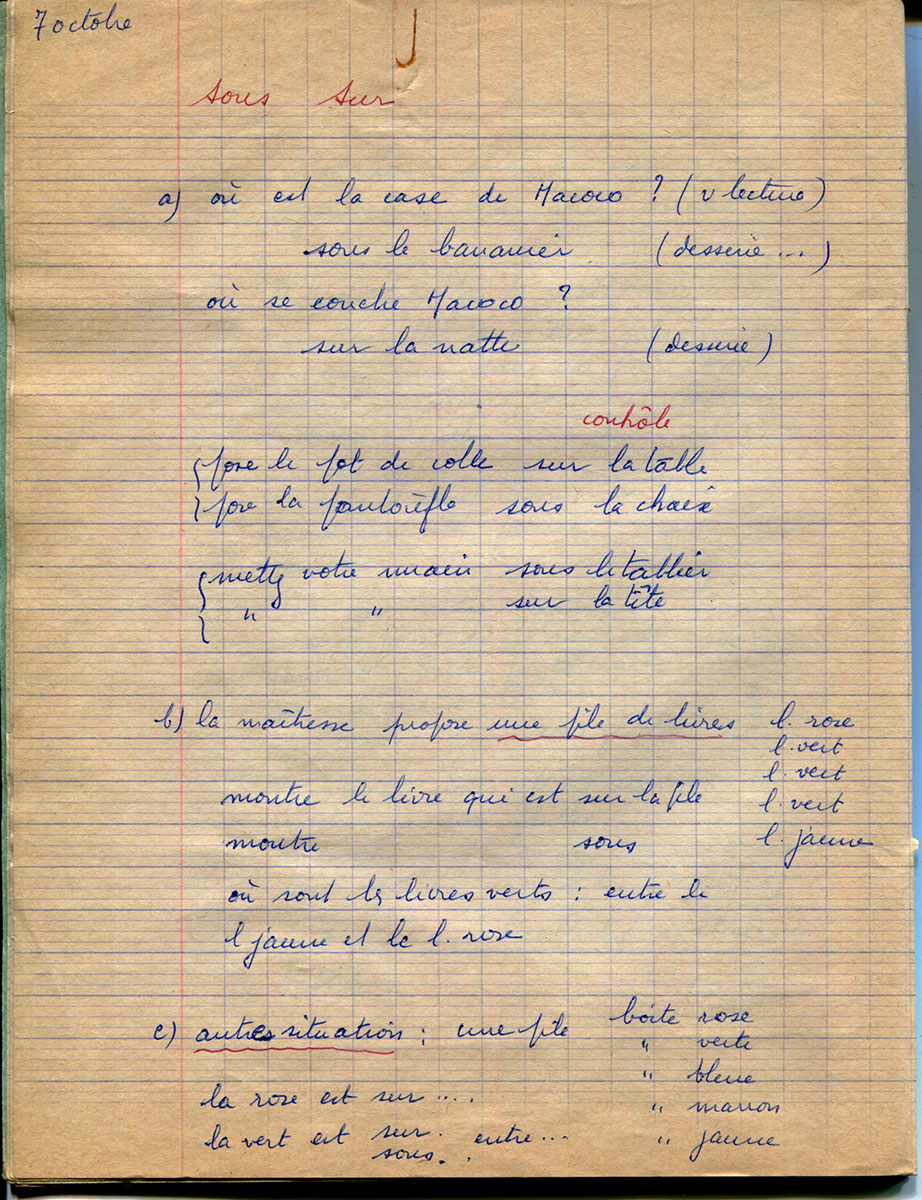 7 octobre
sous sur
a) où est la case de Macoco ? (v lecture)
sous le bananier (desserie ...)
où se couche Macoco ?
sur la natte (desserie)
contrôle
pose le pot de colle sur la table
pose la pantoufle sous la chaise
mettez votre main sous le tablier
" " sur la tête
b) la maîtresse propose une pile de livres l. rose
l. vert
l. vert
montre le livre qui est sur la pile l. vert
montre sous l. jaune
où sont les livres verts : entre le
l jaune et le l. rose
c) autres situation : une pile boîte rose
" verte
" bleue
la rose est sur .... " marron
la vert est sur. entre... " jaune
sous..